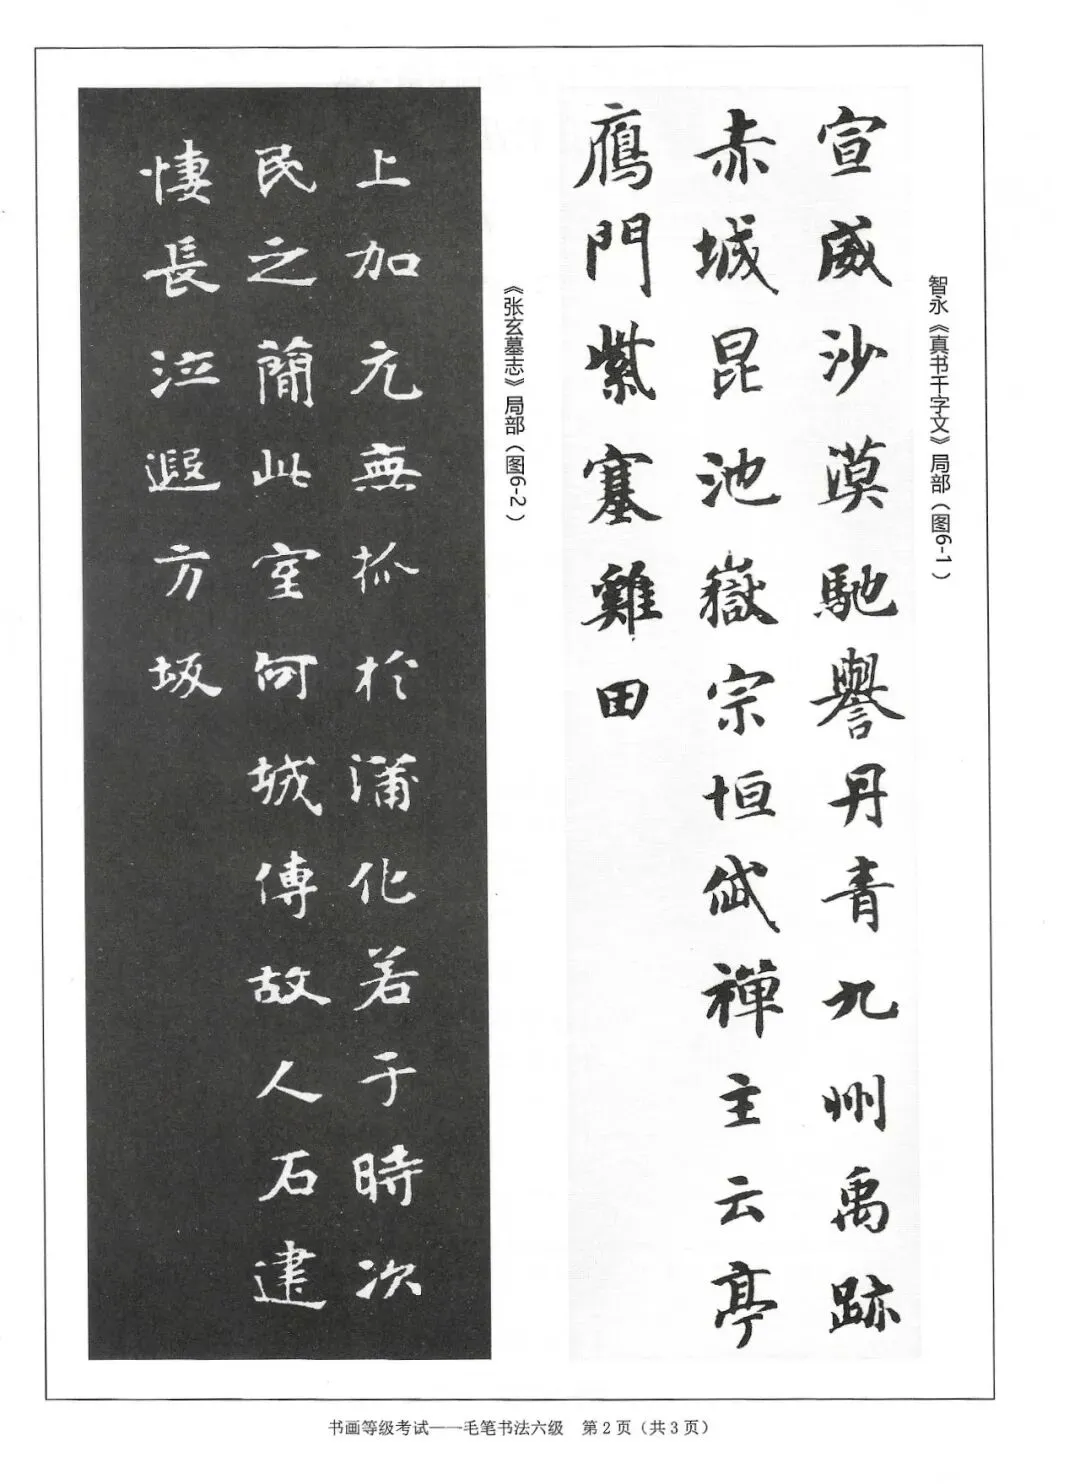 智永《真书千字文》局部（图6-1）
宣威沙漠馳譽丹青九州禹跡
赤城昆池嶽宗恒岱禪主云亭
鴈門紫塞雞田
《张玄墓志》局部（图6-2）
上加元無於蒲化若于時次
民之簡此室何城傅故人石建
悽長泣遐方坂
书画等级考试——毛笔书法六级 第2页（共3页）